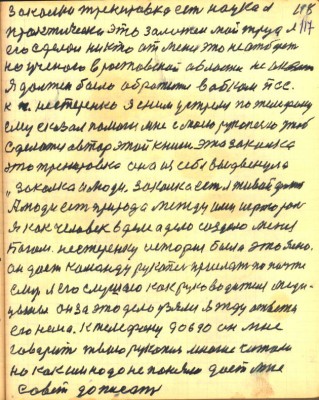 закалка тренировка ест наука и 108
практическа это заложен мой труд я 117
его сделал никто от меня это не отберет
но ученого в ростовской области не
я должен было обратится в обком псс.
к нестеренко я с ним устрою по телефону
ему сказал помоги мне с моею рукописю чтоб
сделали автор этой книги. это закалка
это тренировка она из себя выдвенула
„закалка и люди. закалка ест живой
а люди ест природа между ими
я как человек в деле а дело создало меня
богом. нестеренку история была это ясно.
он дает команду рукапес прислат по почте
ему я его слушаю как руководителя
он за это дело взялся я жду ответа
его нема. к телефону довзо он мне
говорит твою рукопис многие читали
но как им подо не поняли дает мне
совет дописат